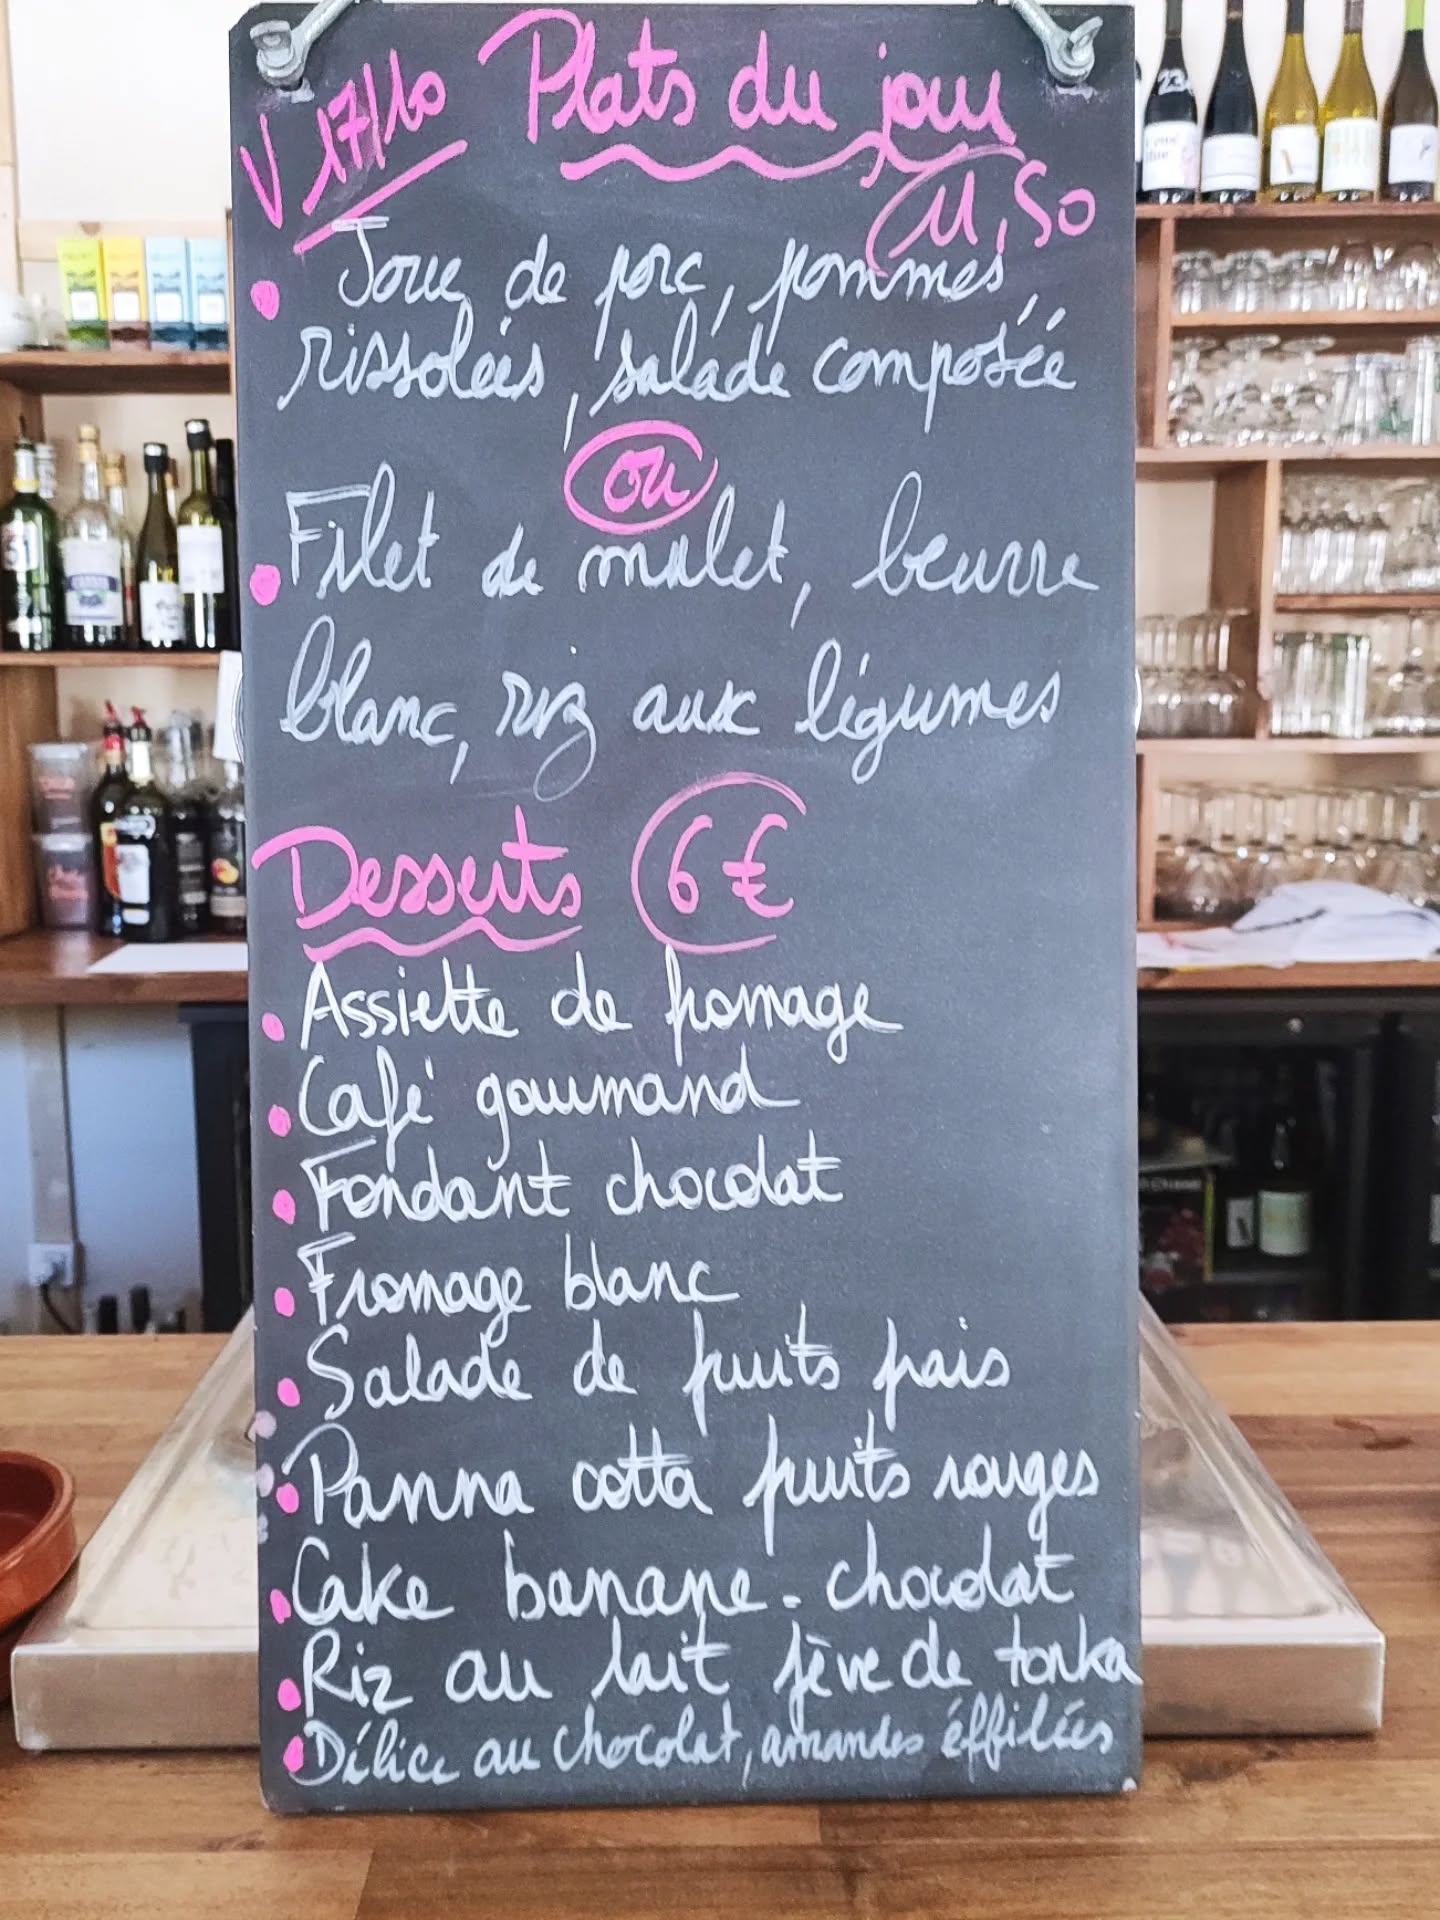 V 17/10 Plats du jour
11,50
Joue de porc, pommes
rissolées, salade composée
ou
Filet de mulet, beurre
blanc, riz aux légumes
Desserts 6€
Assiette de fromage
Café gourmand
Fondant chocolat
Fromage blanc
Salade de fruits frais
Panna cotta fruits rouges
Cake banane - chocolat
Riz au lait fève de tonka
Délice au chocolat, amandes éffilées
51
23